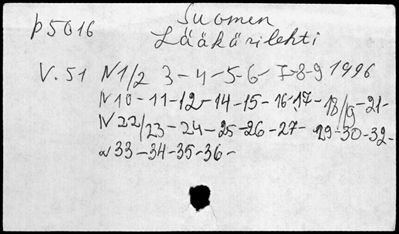 p5016
Suomen
Lääkärilehti
V.51 N1/2 3-4-5-6- 7-8-9 1996
N10-11-12-14-15-16-17-18/19-21-
N22/23-24-25-26-27-29-30-32-
N33-34-35-36-